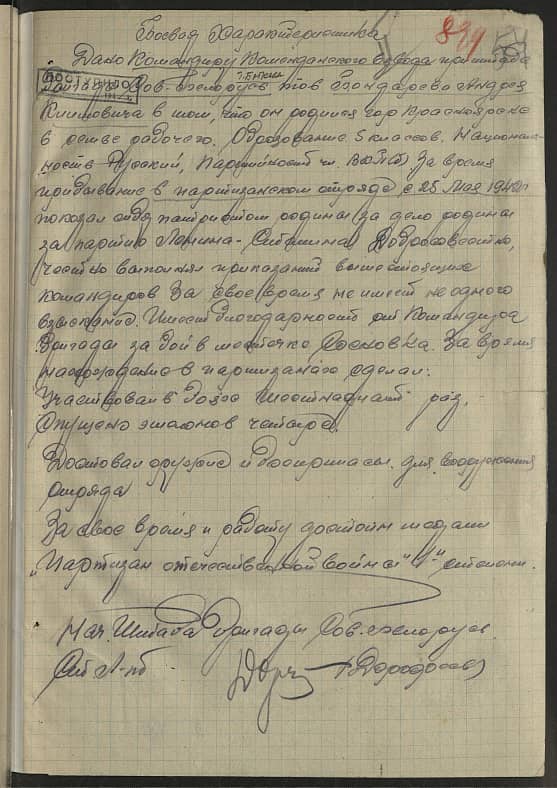 Боевая Характеристика
Дано Командиру Комендантского взвода при штабе
Сов-Белорусь тов Бондарева Андрея
Климовича в том, что он родился гор Красноярске
в семье рабочего. Образование 5 классов. Националь-
ность Русский, Партийность чл. ВКП(б) За время
прибывание в партизанском отряде с 25 мая 1942 г
показал себя патриотом родины за дело родины
за партию Ленина-Сталина Добросовестно,
честно выполнял приказаний вышестоящих
командиров За свое время не имеет не одного
взыскание. Имеет благодарность от Командира
бригады за бой в местечко Сосновка. За время
нахождение в партизанах сделал:
Участвовал в боях шестнадцать раз,
Спущено эшалонов четыре.
Доставал оружие и боеприпасы для вооружения
отряда
За свое время и работу достоин медали
"Партизан отечественной войны" "1"-степени.
Нач. Штаба бригады Сов.-Белорусь
Ст Л-нт